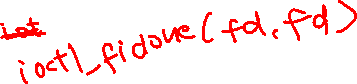 ioctl_fidoue(fd, fd)